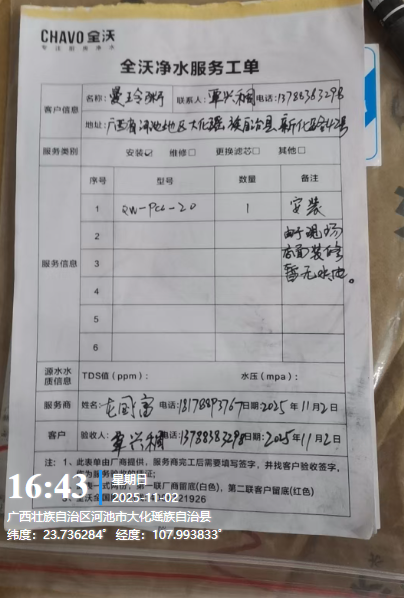 CHAVO 全沃
专注厨房净水
全沃净水服务工单
客户信息
名称: 联系人:覃兴桐 电话:13788383298
地址:广西省河池地区大化瑶族自治县新化路42号
服务类别 安装☑ 维修□ 更换滤芯□ 其他□
服务信息
序号 型号 数量 备注
1 QW-PCL-20 1 安装
2 由于现场
店面装修
3 暂无水电。
4
5
6
源水水质信息 TDS值(ppm): 水压(mpa):
服务商 姓名: 电话:18178893767 日期:2025年11月2日
客户 验收人:覃兴桐 电话:13788383298 日期:2025年11月2日
注: 1、此表单由厂商提供,服务商完工后需要填写签字,并找客户验收签字,
16:43 星期日
2025-11-02
第一联厂商留底(白色),第二联客户留底(红色)
全沃全国
21926
广西壮族自治区河池市大化瑶族自治县
纬度: 23.736284° 经度: 107.993833°